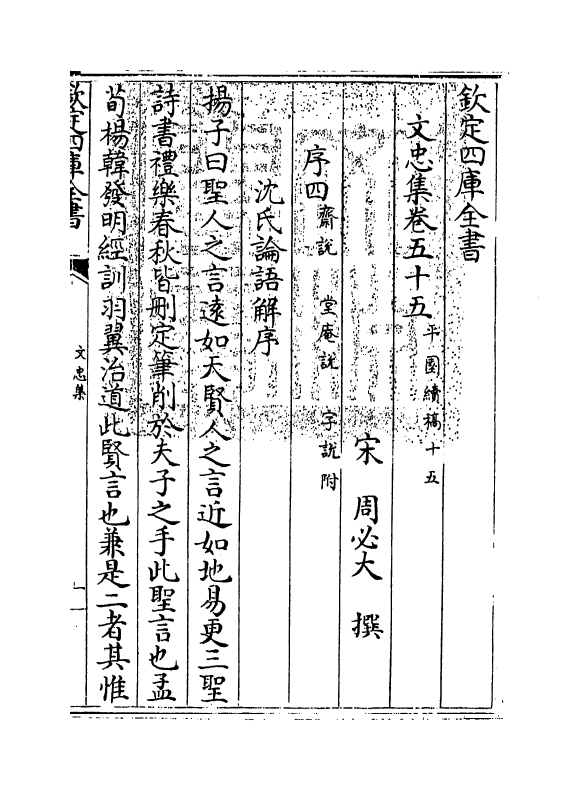 欽定四庫全書
文忠集卷五十五 平園續稿十五
宋 周必大 撰
序四 齋說 堂庵說 字說附
沈氏論語解序
揚子曰聖人之言遠如天賢人之言近如地易更三聖
詩書禮樂春秋皆刪定筆削於夫子之手此聖言也孟
荀楊韓發明經訓羽翼治道此賢言也兼是二者其惟
欽定四庫全書
文忠集
一